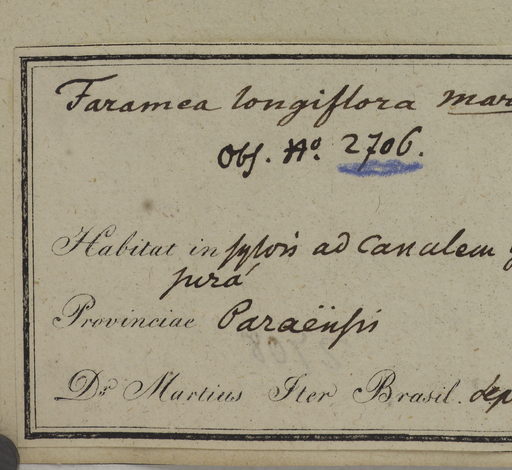 Faramea longiflora
Obs. No. 2706.
Habitat in sylvis ad Canalem
purá
Provinciae Paraënsis
Dr. Martius Iter Brasil.